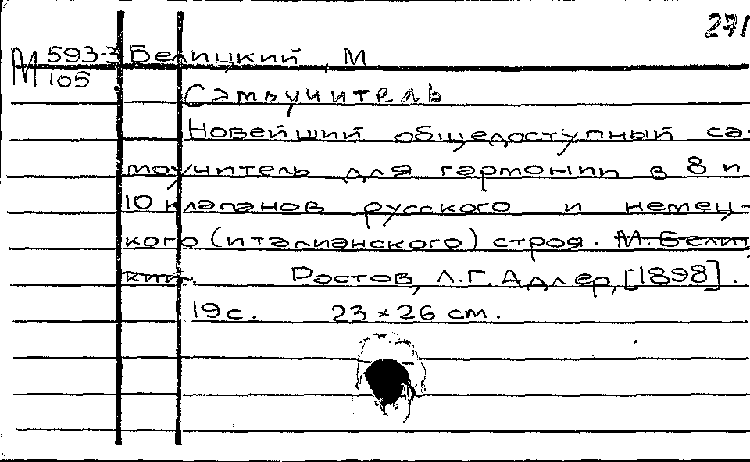 271
М 593-3 Белицкий, М
105
Самоучитель
Новейший общедоступный са-
моучитель для гармонии в 8 и
10 клапанов русского и немец-
кого (итальянского) строя. М. Белиц
кий. Ростов, Л.Г. Адлер, [1898].
19 с. 23 × 26 см.